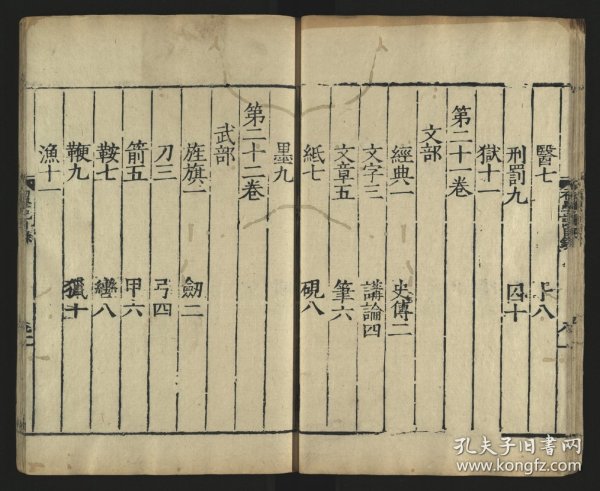 醫七 卜八
刑罰九 囚十
獄十一
第二十一卷
文部
經典一 史傳二
文字三 講論四
文章五 筆六
紙七 硯八
墨九
第二十二卷
武部
旌旗一 劒二
刀三 弓四
箭五 甲六
鞍七 轡八
鞭九 獵十
漁十一
孔夫子旧书网
www.kongfz.com